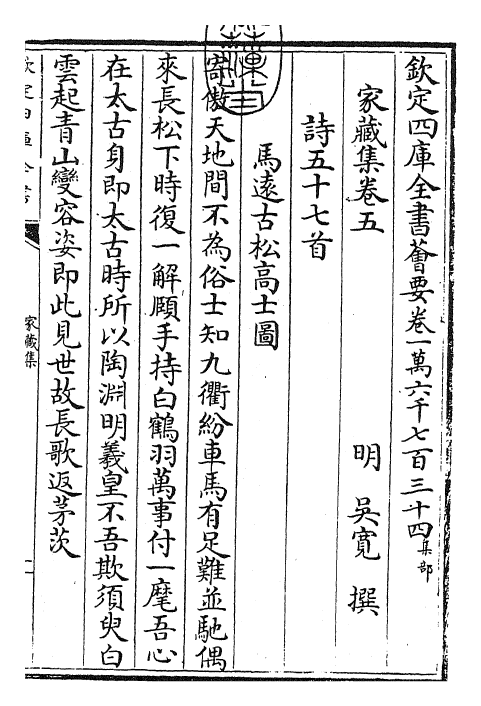 欽定四庫全書薈要卷一萬六千七百三十四集部
家藏集卷五　　　　　　明　吳寬　撰
詩五十七首
馬遠古松高士圖
寄傲天地間不為俗士知九衢紛車馬有足難並馳偶
來長松下時復一解頤手持白鶴羽萬事付一麾吾心
在太古身即太古時所以陶淵明羲皇不吾欺須臾白
雲起青山變容姿即此見世故長歌返茅茨
家藏集